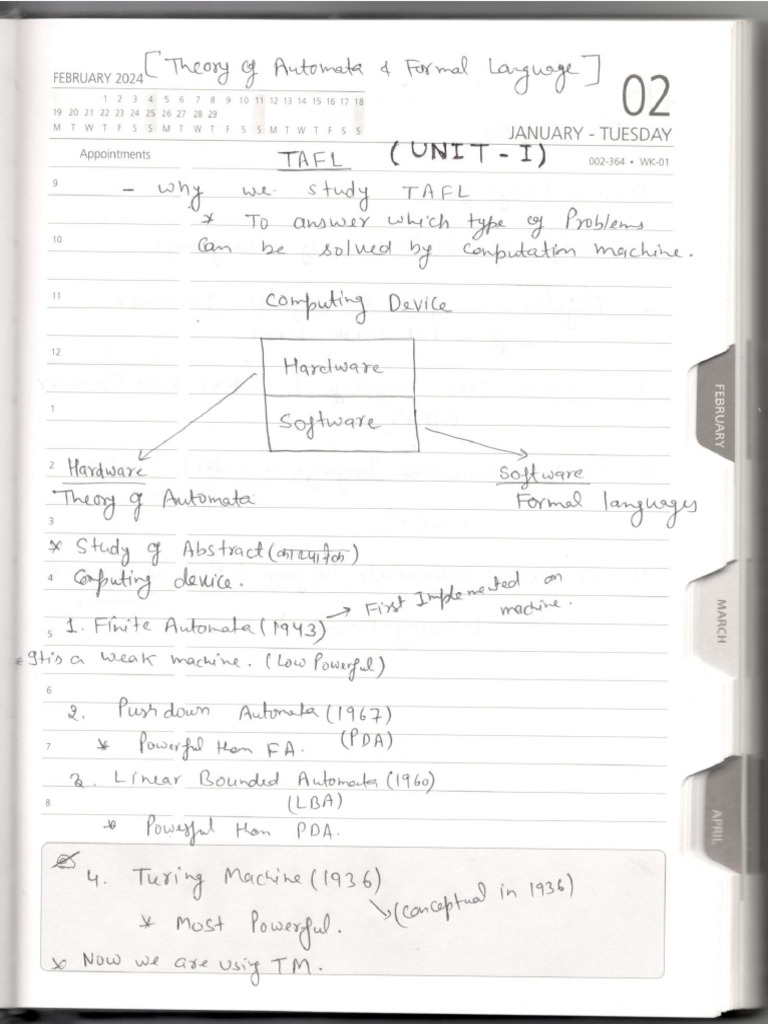 [Theory of Automata & Formal Language]
FEBRUARY 2024
1 2 3 4 5 6 7 8 9 10 11 12 13 14 15 16 17 18
19 20 21 22 23 24 25 26 27 28 29
M T W T F S S M T W T F S S M T W T F S S M T W T F S S
02
JANUARY - TUESDAY
Appointments
TAFL (UNIT - I)
002-364 • WK-01
9 - why we study TAFL
* To answer which type of Problems
10 Can be solved by computation machine.
11 Computing Device
12 Hardware
1 Software
2 Hardware Software
Theory of Automata Formal languages
3
* Study of Abstract (काल्पनिक)
4 Computing device.
→ First Implemented on machine.
5 1. Finite Automata (1943)
* It is a weak machine. (Low Powerful)
6
2. Pushdown Automata (1967)
7 * Powerful than FA. (PDA)
3. Linear Bounded Automata (1960)
8 (LBA)
* Powerful than PDA.
4. Turing Machine (1936)
(conceptual in 1936)
* Most Powerful.
* Now we are using TM.
FEBRUARY
MARCH
APRIL